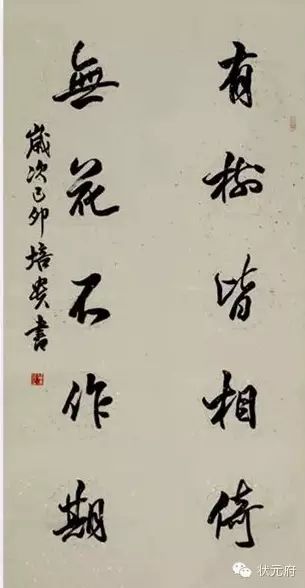 有樹皆相倚
無花不作期
歲次己卯培貴書
状元府